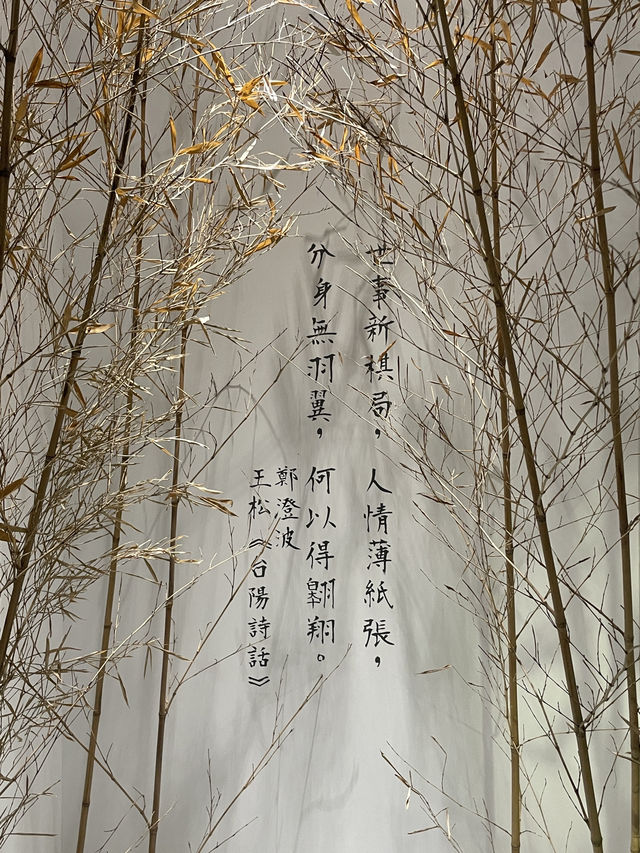 世事新棋局，人情薄紙張，
分身無羽翼，何以得翱翔。
鄭澄波
王松《台陽詩話》